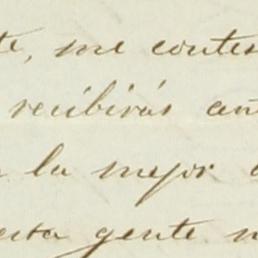 te, me contes
recibirás an
la mejor
esta gente n